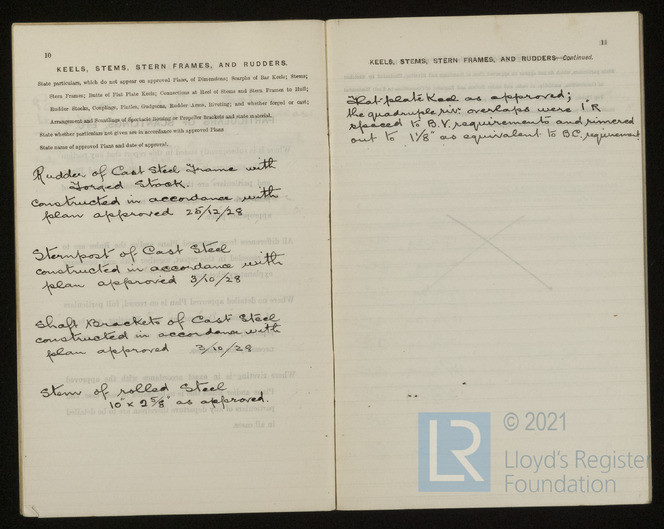 10
KEELS, STEMS, STERN FRAMES, AND RUDDERS.
State particulars, which do not appear on approved Plans, of Dimensions; Scarphs of Bar Keels; Stems;
Stern Frames; Butts of Flat Plate Keels; Connections at Heel of Stems and Stern Frames to Hull;
Rudder Stocks, Couplings, Pintles, Gudgeons, Rudder Arms, Riveting; and whether forged or cast;
Arrangement and Scantlings of Spectacle Bossing or Propeller Brackets and state material.
State whether particulars not given are in accordance with approved Plans
State name of approved Plans and date of approval.
Rudder of Cast Steel Frame with
Forged Stock.
constructed in accordance with
plan approved 28/12/28
Sternpost of Cast Steel
constructed in accordance with
plan approved 3/10/28
Shaft Brackets of Cast Steel
constructed in accordance with
plan approved 3/10/28
Stem of rolled Steel
10" x 2 5/8" as approved.
11
KEELS, STEMS, STERN FRAMES, AND RUDDERS—Continued.
Flat plate Keel as approved;
the quadruple riv: overlaps were 1" R
spaced to B.V. requirements and rimered
out to 1 1/8" as equivalent to B.C. requirement
LR
© 2021
Lloyd's Register
Foundation